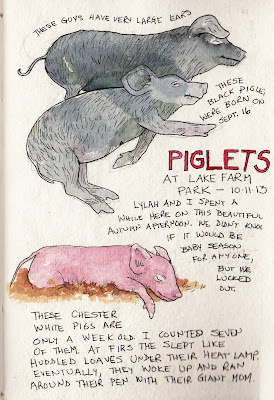 THESE GUYS HAVE VERY LARGE EARS
THESE
BLACK PIGLETS
WERE BORN ON
SEPT. 16
PIGLETS
AT LAKE FARM
PARK – 10-11-13
LYLAH AND I SPENT A
WHILE HERE ON THIS BEAUTIFUL
AUTUMN AFTERNOON. WE DIDN'T KNOW
IF IT WOULD BE
BABY SEASON
FOR ANYONE,
BUT WE
LUCKED
OUT.
THESE CHESTER
WHITE PIGS ARE
ONLY A WEEK OLD. I COUNTED SEVEN
OF THEM. AT FIRS THE SLEPT LIKE
HUDDLED LOAVES UNDER THEIR HEAT LAMP.
EVENTUALLY, THEY WOKE UP AND RAN
AROUND THEIR PEN WITH THEIR GIANT MOM.